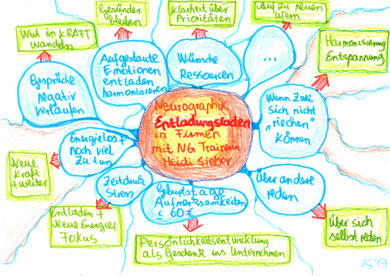 Gesünder
bleiben
Klarheit über
Prioritäten
Auf zu neuen
Ufern
Wut in KRAFT
wandeln
Harmonisierung
Entspannung
Aufgestaute
Emotionen
entladen
harmonisieren
Wünsche
Ressourcen
...
Gespräche
negativ
verlaufen
Wenn Zwei
sich nicht
"riechen"
können
Neurographik
Entladungsfaden
in Firmen
mit NG Trainerin
Heidi Sieber
Energielos +
noch viel
zu tun
Neue
Kraft +
weiter
Zeitdruck
Stress
Geburtstage
Aufmerksamkeiten
< 60 €
Über andere
reden
Entladen +
Neue Energie +
Fokus
Persönlichkeitsentwicklung
als Geschenk ins Unternehmen
Über sich
selbst reden